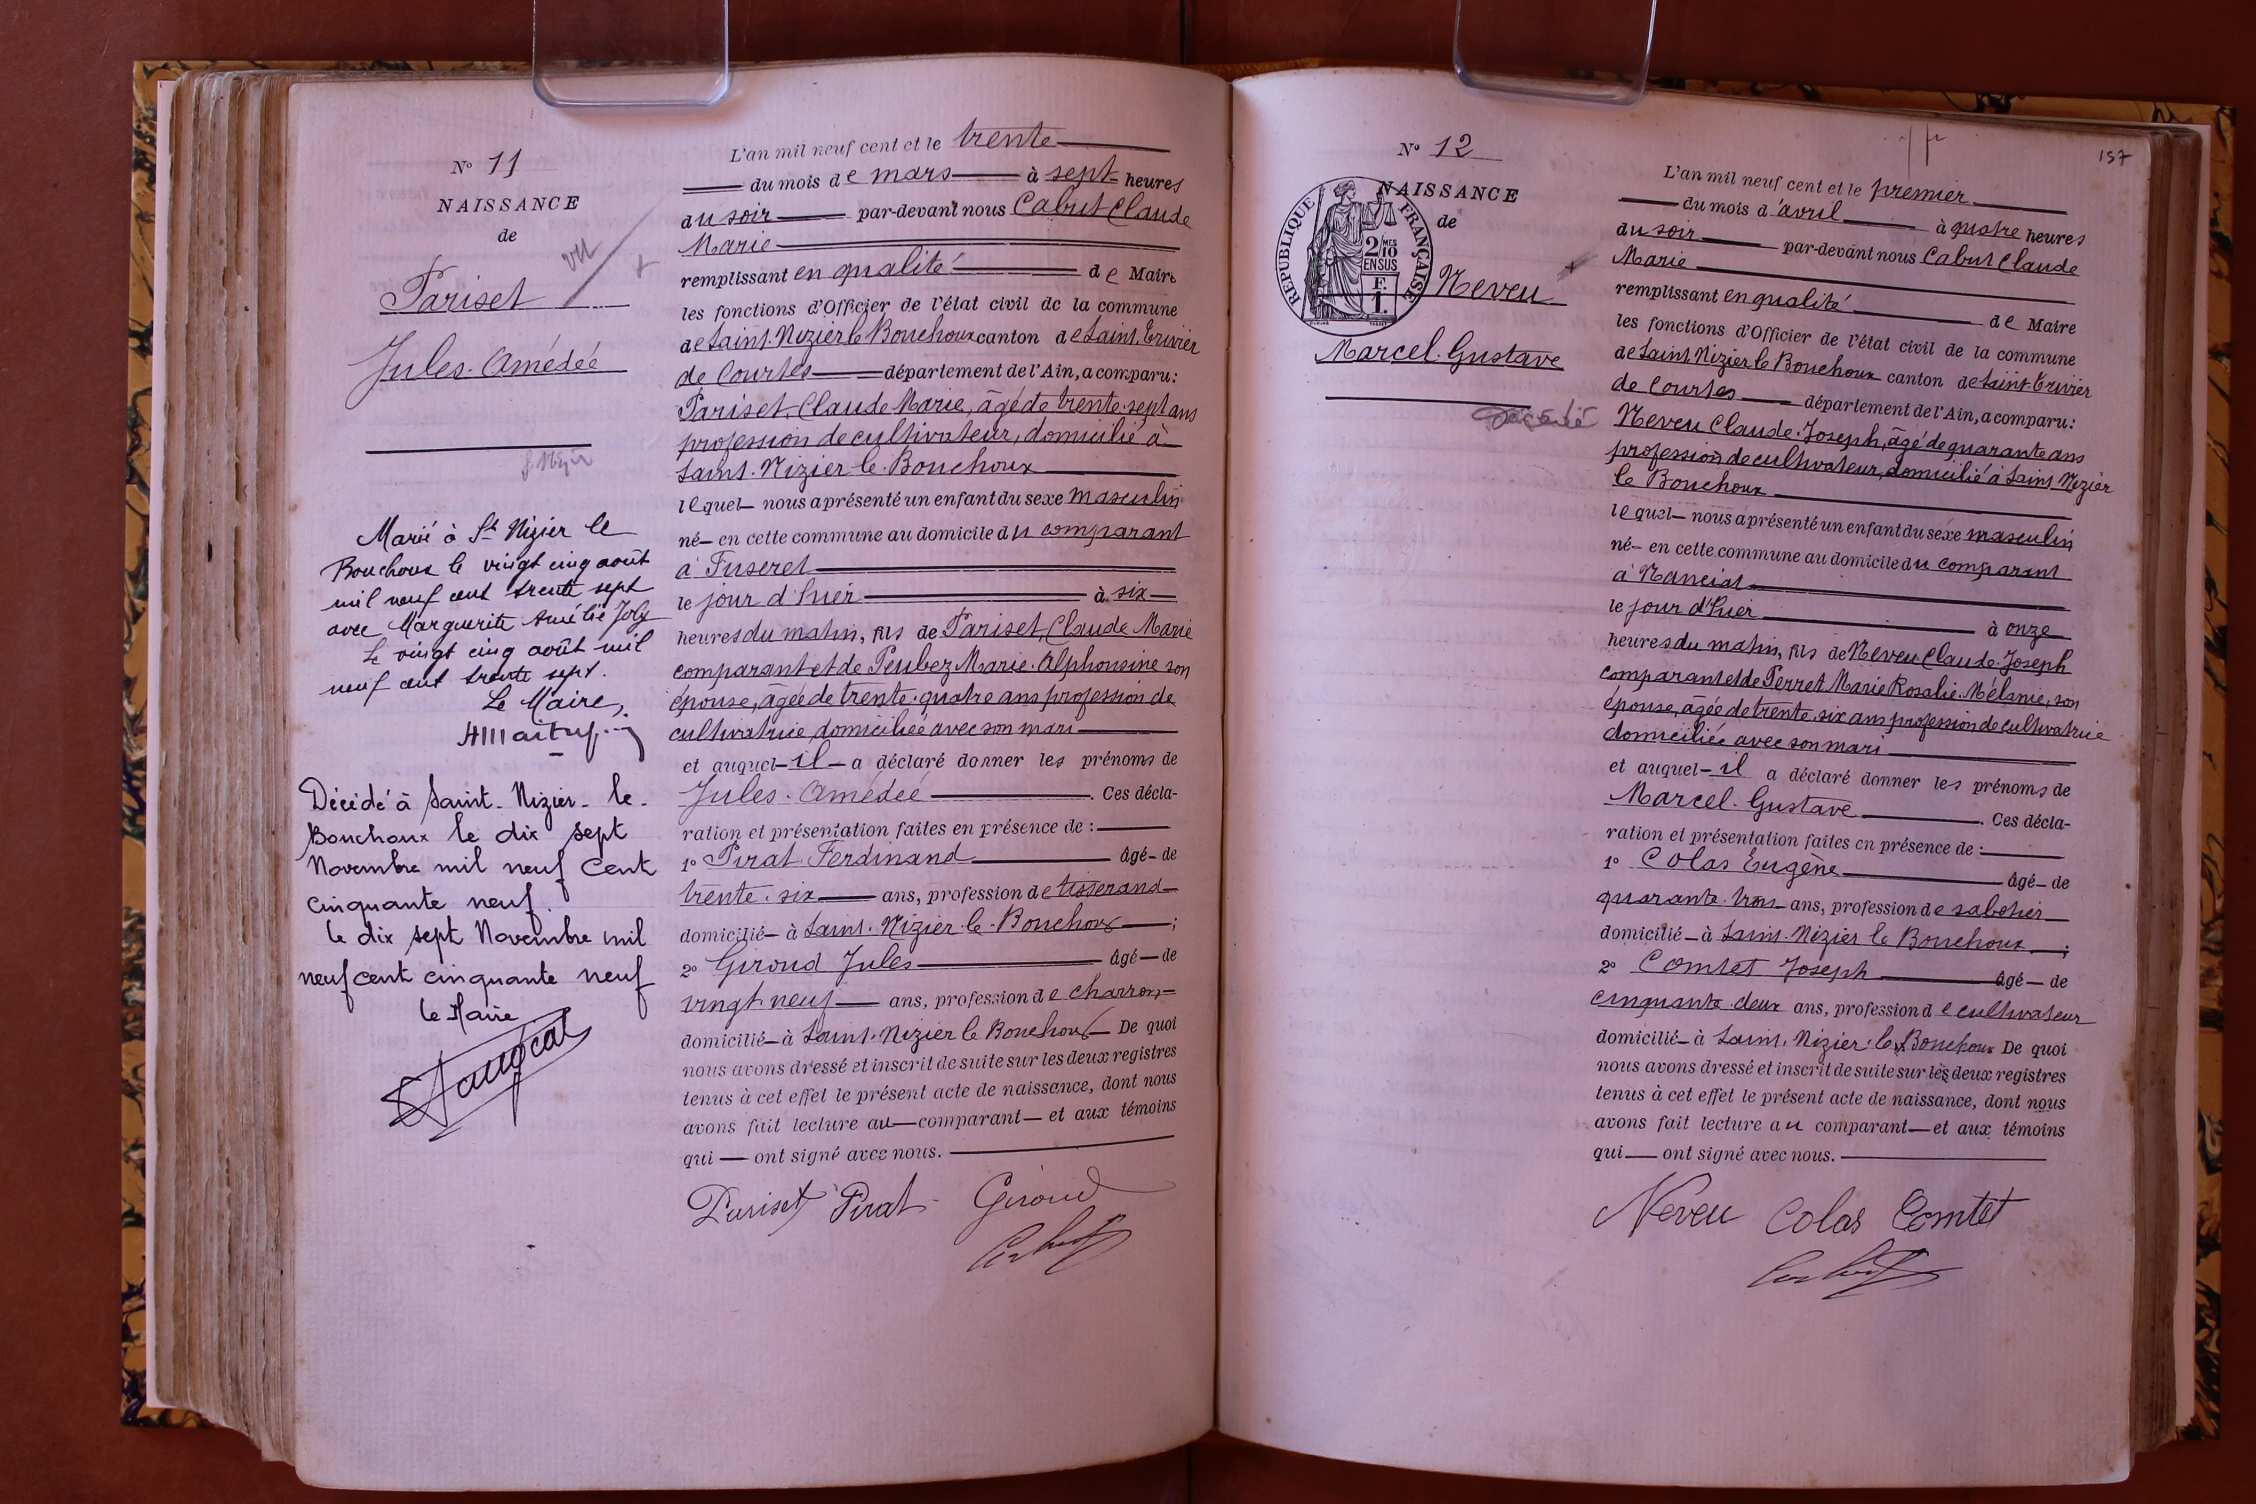 N° 11
NAISSANCE
de
vu
Pariset
Jules. Amédée
St Nizier
Marié à St Nizier le
Bouchoux le vingt cinq août
mil neuf cent trente sept
avec Marguerite Amélie Joly
Le vingt cinq août mil
neuf cent trente sept.
Le Maire,
Décédé à Saint-Nizier-le-
Bouchoux le dix sept
Novembre mil neuf cent
cinquante neuf.
le dix sept Novembre mil
neuf cent cinquante neuf
le Maire
L'an mil neuf cent et le trente
du mois de mars à sept heures
du soir par-devant nous Cabut Claude
Marie
remplissant en qualité de Maire
les fonctions d'Officier de l'état civil de la commune
de Saint. Nizier le Bouchoux canton de Saint. Trivier
de Courtes département de l'Ain, a comparu:
Pariset, Claude Marie, âgé de trente. sept ans
profession de cultivateur, domicilié à
Saint. Nizier-le-Bouchoux
lequel nous a présenté un enfant du sexe masculin
né en cette commune au domicile du comparant
à Fuseret
le jour d'hier à six
heures du matin, fils de Pariset, Claude Marie
comparant et de Peubez Marie. Alphonsine son
épouse, âgée de trente. quatre ans profession de
cultivatrice, domiciliée avec son mari
et auquel il a déclaré donner les prénoms de
Jules. Amédée. Ces décla-
ration et présentation faites en présence de :
1° Pirat Ferdinand âgé de
trente. six ans, profession de tisserand
domicilié à Saint. Nizier-le-Bouchoux ;
2° Giroud Jules âgé de
vingt. neuf ans, profession de charron
domicilié à Saint. Nizier le Bouchoux De quoi
nous avons dressé et inscrit de suite sur les deux registres
tenus à cet effet le présent acte de naissance, dont nous
avons fait lecture au comparant et aux témoins
qui ont signé avec nous.
Pariset Pirat Giroud
Cabut
157
N° 12
NAISSANCE
de
REPUBLIQUE FRANÇAISE
2/10 MES
EN SUS
F.
1.
Neveu
Marcel. Gustave
L'an mil neuf cent et le premier
du mois d'avril à quatre heures
du soir par-devant nous Cabut Claude
Marie
remplissant en qualité de Maire
les fonctions d'Officier de l'état civil de la commune
de Saint Nizier le Bouchoux canton de Saint-Trivier
de Courtes département de l'Ain, a comparu:
Neveu Claude. Joseph, âgé de quarante ans
profession de cultivateur, domicilié à Saint Nizier
le Bouchoux
lequel nous a présenté un enfant du sexe masculin
né en cette commune au domicile du comparant
à Nanciat
le jour d'hier à onze
heures du matin, fils de Neveu Claude. Joseph
comparant et de Perret Marie Rosalie. Mélanie, son
épouse, âgée de trente. six ans profession de cultivatrice
domiciliée avec son mari
et auquel il a déclaré donner les prénoms de
Marcel. Gustave. Ces décla-
ration et présentation faites en présence de :
1° Colas Eugène âgé de
quarante. trois ans, profession de sabotier
domicilié à Saint. Nizier le Bouchoux ;
2° Comtet Joseph âgé de
cinquante. deux ans, profession de cultivateur
domicilié à Saint. Nizier. le Bouchoux De quoi
nous avons dressé et inscrit de suite sur les deux registres
tenus à cet effet le présent acte de naissance, dont nous
avons fait lecture au comparant et aux témoins
qui ont signé avec nous.
Neveu Colas Comtet
Cabut